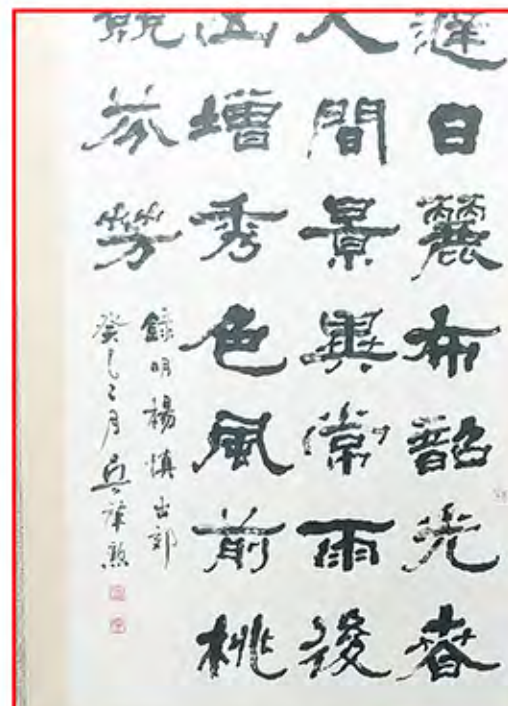 遲日麗布韶光春
人間景異常雨後
山增秀色風前桃
競芬芳
錄明楊慎出郊
癸巳二月吳